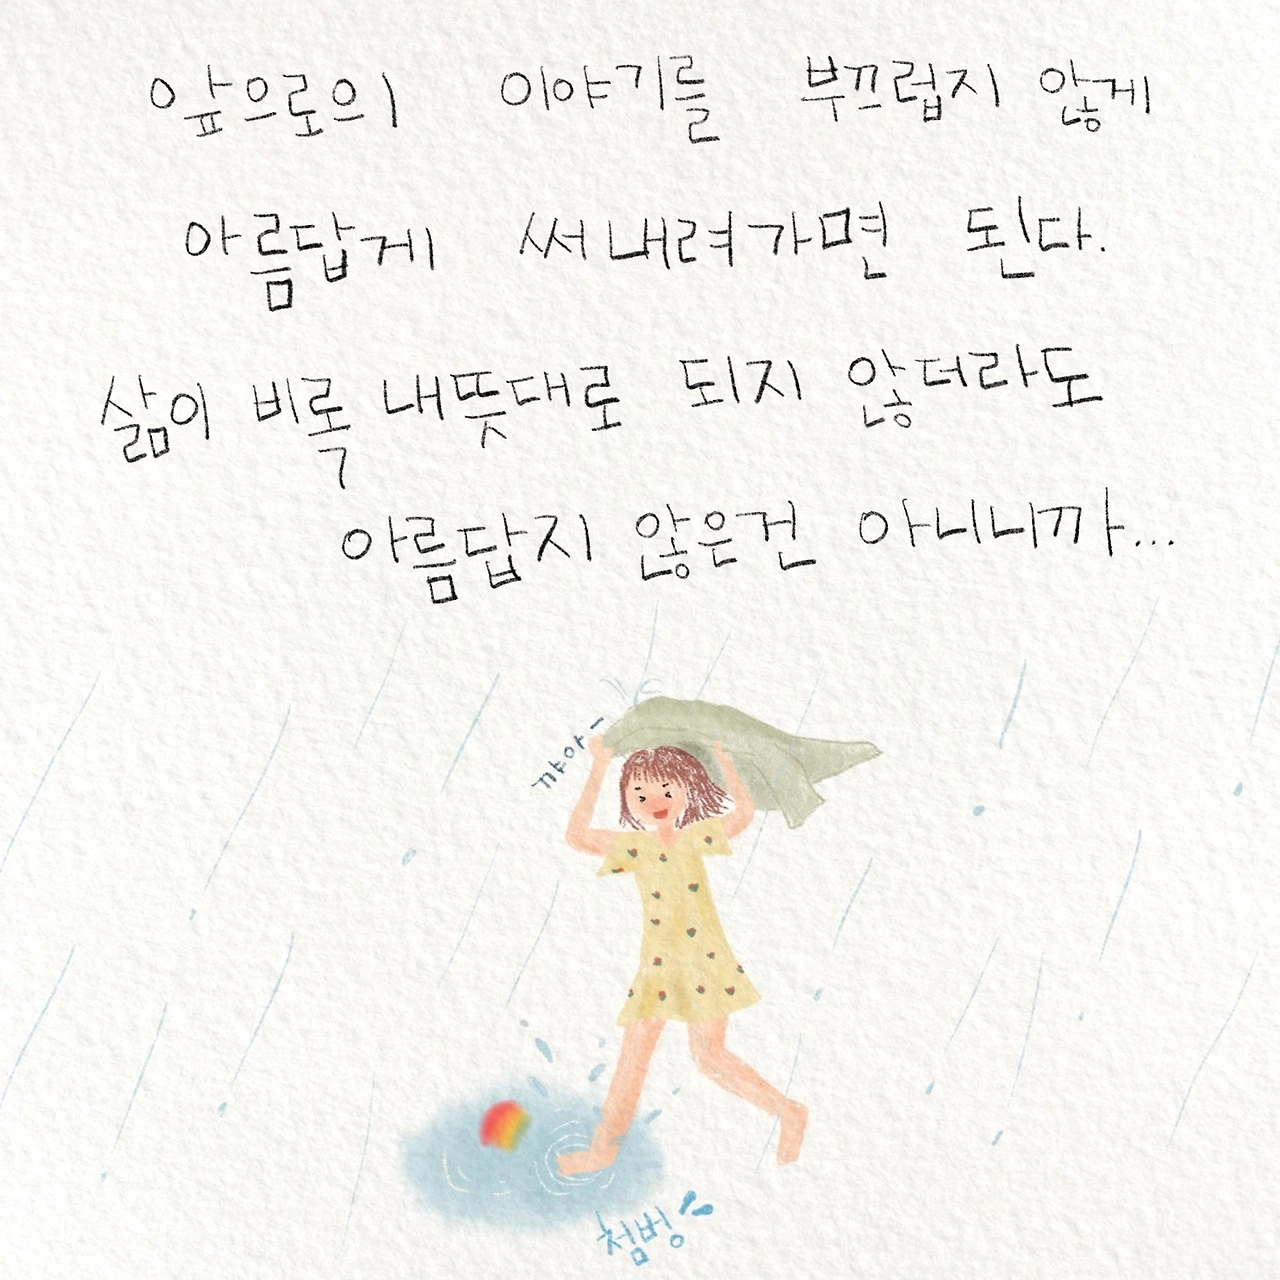 앞으로의 이야기를 부끄럽지 않게
아름답게 써 내려가면 된다.
삶이 비록 내뜻대로 되지 않더라도
아름답지 않은건 아니니까...
꺄아-
첨벙